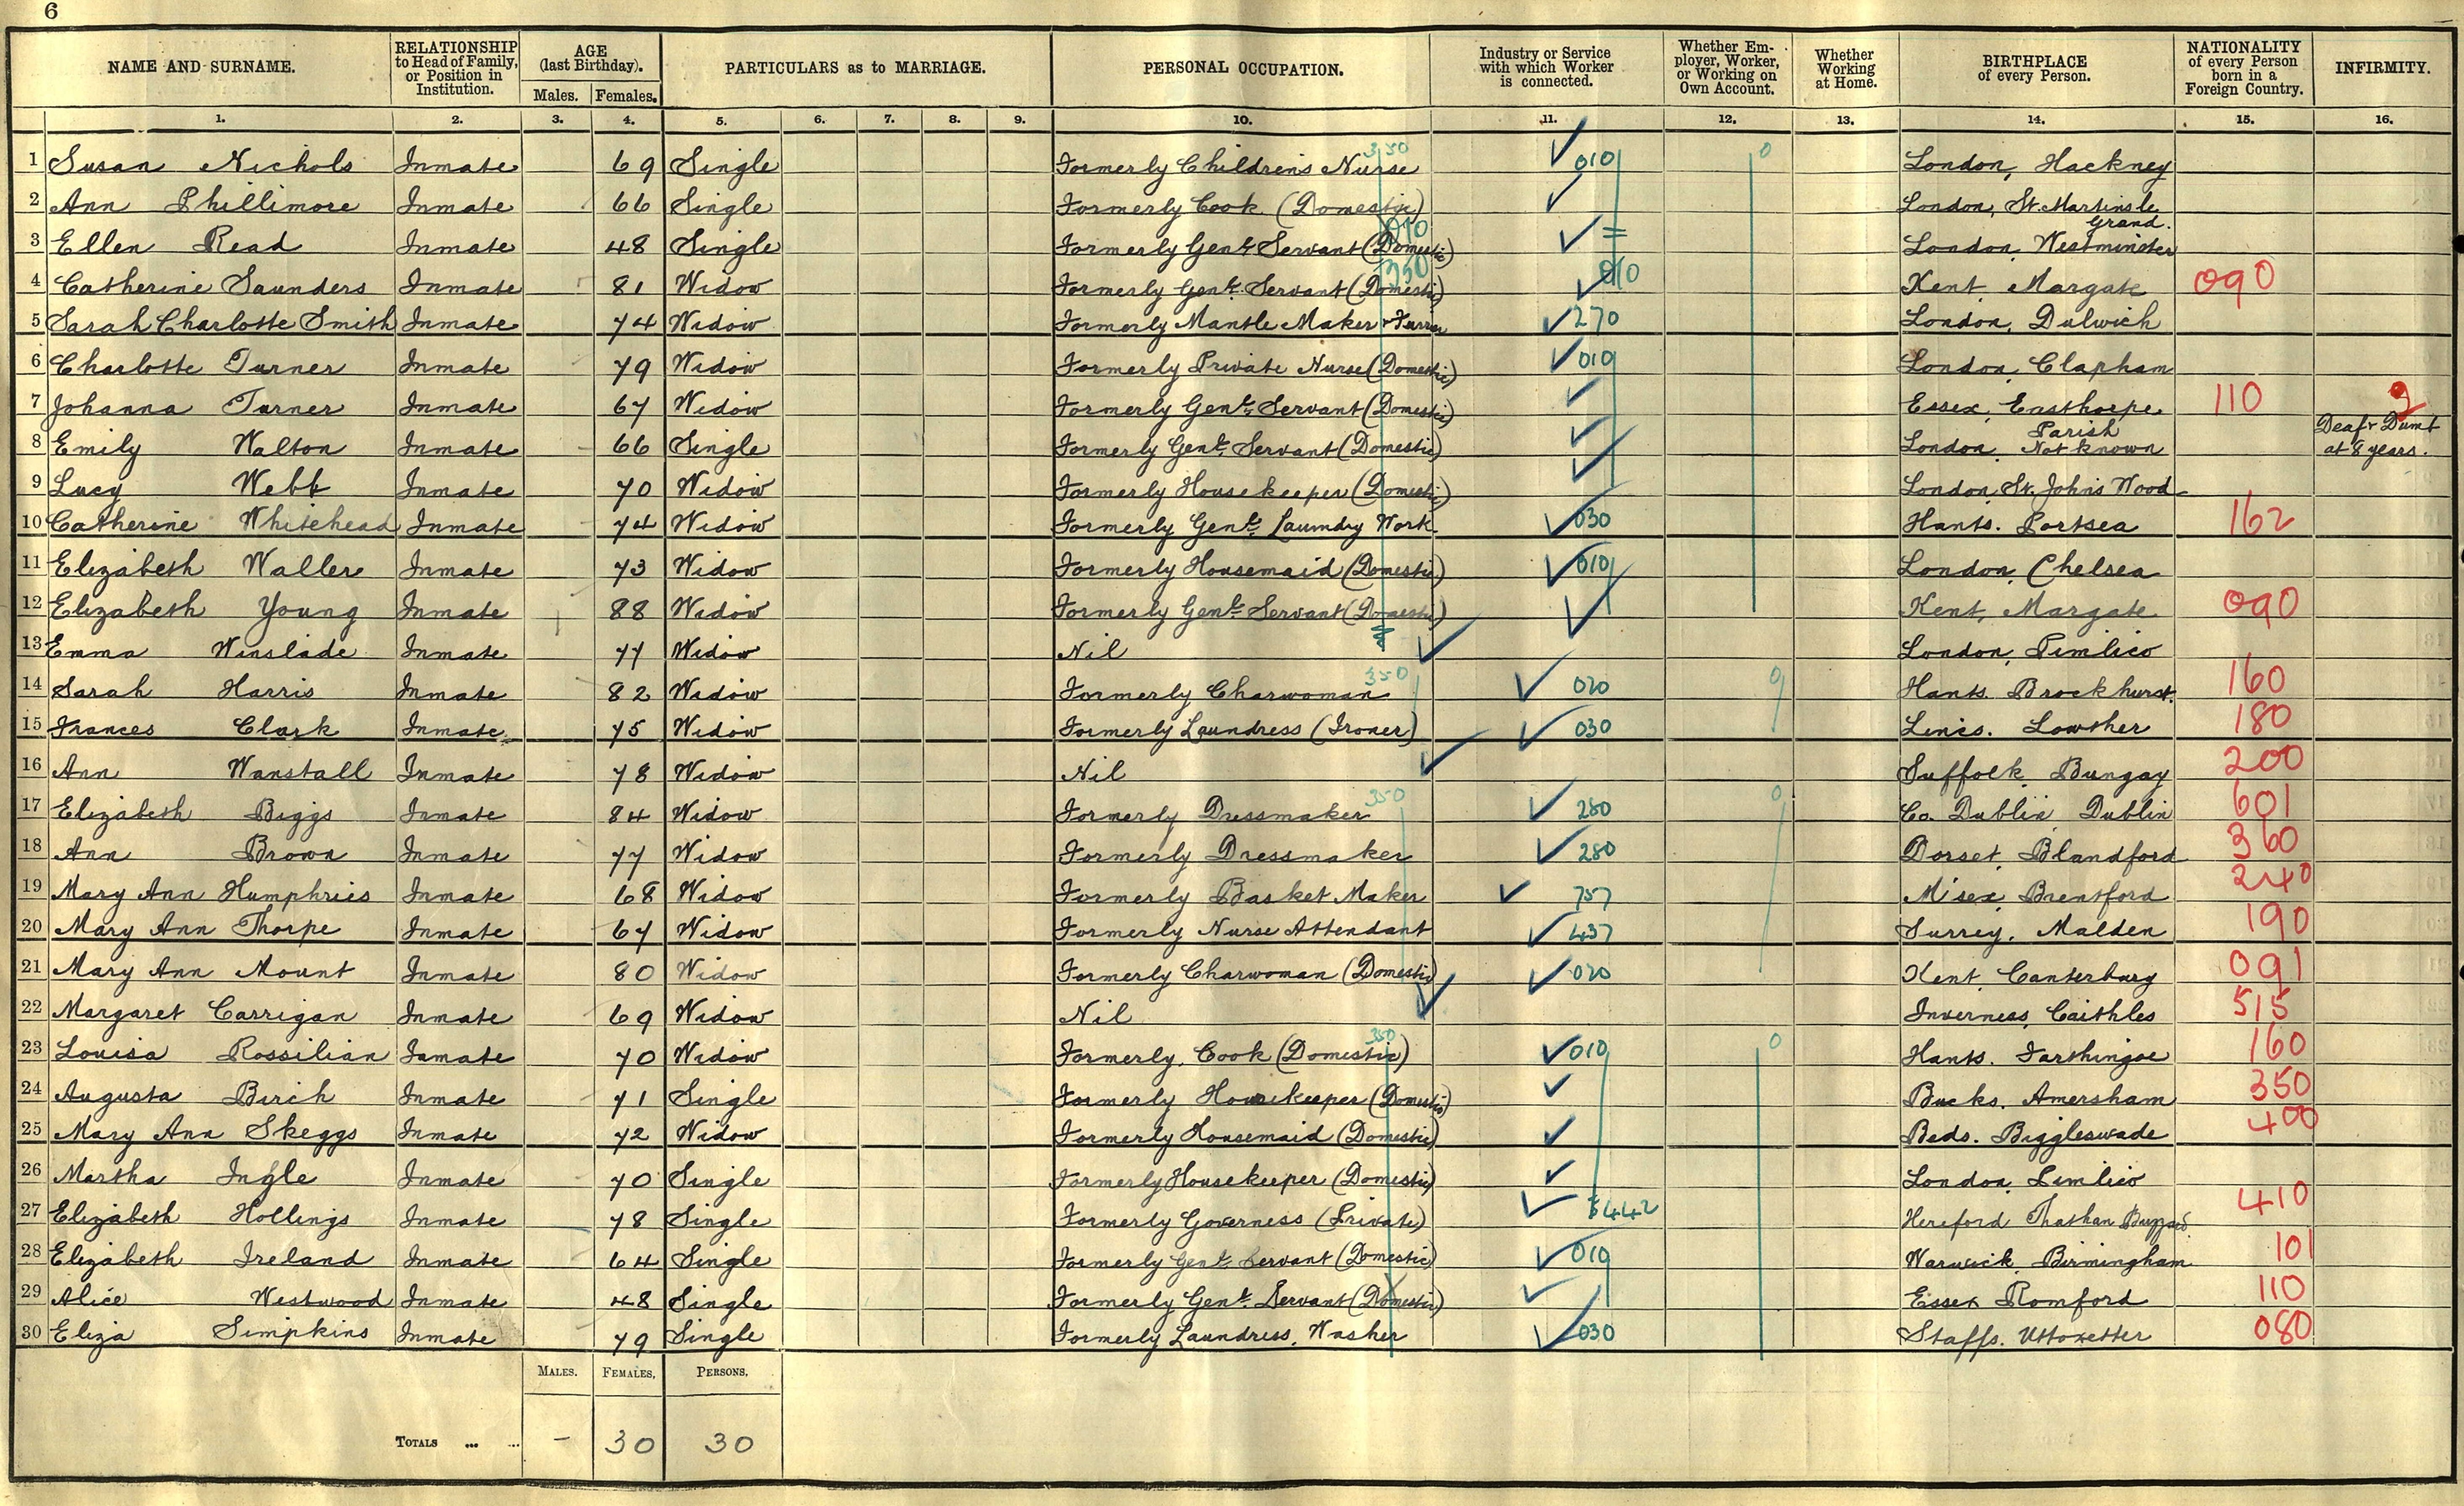 6
NAME AND SURNAME. RELATIONSHIP to Head of Family, or Position in Institution. AGE (last Birthday). Males. Females. PARTICULARS as to MARRIAGE. PERSONAL OCCUPATION. Industry or Service with which Worker is connected. Whether Employer, Worker, or Working on Own Account. Whether Working at Home. BIRTHPLACE of every Person. NATIONALITY of every Person born in a Foreign Country. INFIRMITY.
1. 2. 3. 4. 5. 6. 7. 8. 9. 10. 11. 12. 13. 14. 15. 16.
1 Susan Nichols Inmate 69 Single Formerly Childrens Nurse 350 010 0 London, Hackney
2 Ann Phillimore Inmate 66 Single Formerly Cook (Domestic) London, St. Martins le Grand.
3 Ellen Read Inmate 48 Single Formerly Genl. Servant (Domestic) London, Westminster
4 Catherine Saunders Inmate 81 Widow Formerly Genl. Servant (Domestic) 350 010 Kent, Margate 090
5 Sarah Charlotte Smith Inmate 74 Widow Formerly Mantle Maker & Furrier 270 London, Dulwich
6 Charlotte Turner Inmate 79 Widow Formerly Private Nurse (Domestic) 010 London, Clapham
7 Johanna Turner Inmate 67 Widow Formerly Genl. Servant (Domestic) Essex, Easthorpe 110 9
8 Emily Walton Inmate 66 Single Formerly Genl. Servant (Domestic) London, Parish Not known Deaf & Dumb at 8 years.
9 Lucy Webb Inmate 70 Widow Formerly Housekeeper (Domestic) London, St. Johns Wood
10 Catherine Whitehead Inmate 74 Widow Formerly Genl. Laundry Work 030 Hants. Portsea 162
11 Elizabeth Waller Inmate 73 Widow Formerly Housemaid (Domestic) 010 London, Chelsea
12 Elizabeth Young Inmate 88 Widow Formerly Genl. Servant (Domestic) Kent, Margate 090
13 Emma Winslade Inmate 77 Widow Nil London, Pimlico
14 Sarah Harris Inmate 82 Widow Formerly Charwoman 350 020 0 Hants. Brockhurst. 160
15 Frances Clark Inmate 75 Widow Formerly Laundress (Ironer) 030 Lincs. Lowther 180
16 Ann Wanstall Inmate 78 Widow Nil Suffolk, Bungay 200
17 Elizabeth Biggs Inmate 84 Widow Formerly Dressmaker 350 280 0 Co. Dublin Dublin 601
18 Ann Brown Inmate 77 Widow Formerly Dressmaker 280 Dorset, Blandford 360
19 Mary Ann Humphries Inmate 68 Widow Formerly Basket Maker 757 M'sex, Brentford 240
20 Mary Ann Thorpe Inmate 67 Widow Formerly Nurse Attendant 437 Surrey, Malden 190
21 Mary Ann Mount Inmate 80 Widow Formerly Charwoman (Domestic) 020 Kent, Canterbury 091
22 Margaret Carrigan Inmate 69 Widow Nil Inverness, Caithles 515
23 Louisa Rossilian Inmate 70 Widow Formerly Cook (Domestic) 350 010 0 Hants. Farthingoe 160
24 Augusta Birch Inmate 71 Single Formerly Housekeeper (Domestic) Bucks. Amersham 350
25 Mary Ann Skeggs Inmate 72 Widow Formerly Housemaid (Domestic) Beds. Biggleswade 400
26 Martha Ingle Inmate 70 Single Formerly Housekeeper (Domestic) London, Pimlico
27 Elizabeth Hollings Inmate 78 Single Formerly Governess (Private) Hereford 410
28 Elizabeth Ireland Inmate 64 Single Formerly Genl. Servant (Domestic) 010 Warwick, Birmingham 101
29 Alice Westwood Inmate 48 Single Formerly Genl. Servant (Domestic) Essex Romford 110
30 Eliza Simpkins Inmate 79 Single Formerly Laundress, Washer 030 Staffs. Uttoxetter 080
MALES. FEMALES. PERSONS.
TOTALS ... ... - 30 30